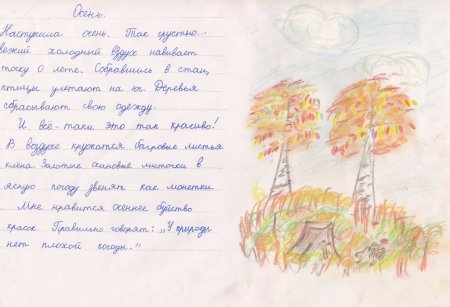 Осень.
Наступила осень. Так грустно...
Свежий холодный воздух навивает
тоску о лете. Собравшись в стаи,
птицы улетают на юг. Деревья
сбрасывают свою одежду.
И всё-таки это так красиво!
В воздухе кружатся багровые листья
клёна. Золотые осиновые листочки в
ясную погоду звенят как монетки.
Мне нравится осеннее буйство
красок. Правильно говорят: „У природы
нет плохой погоды."